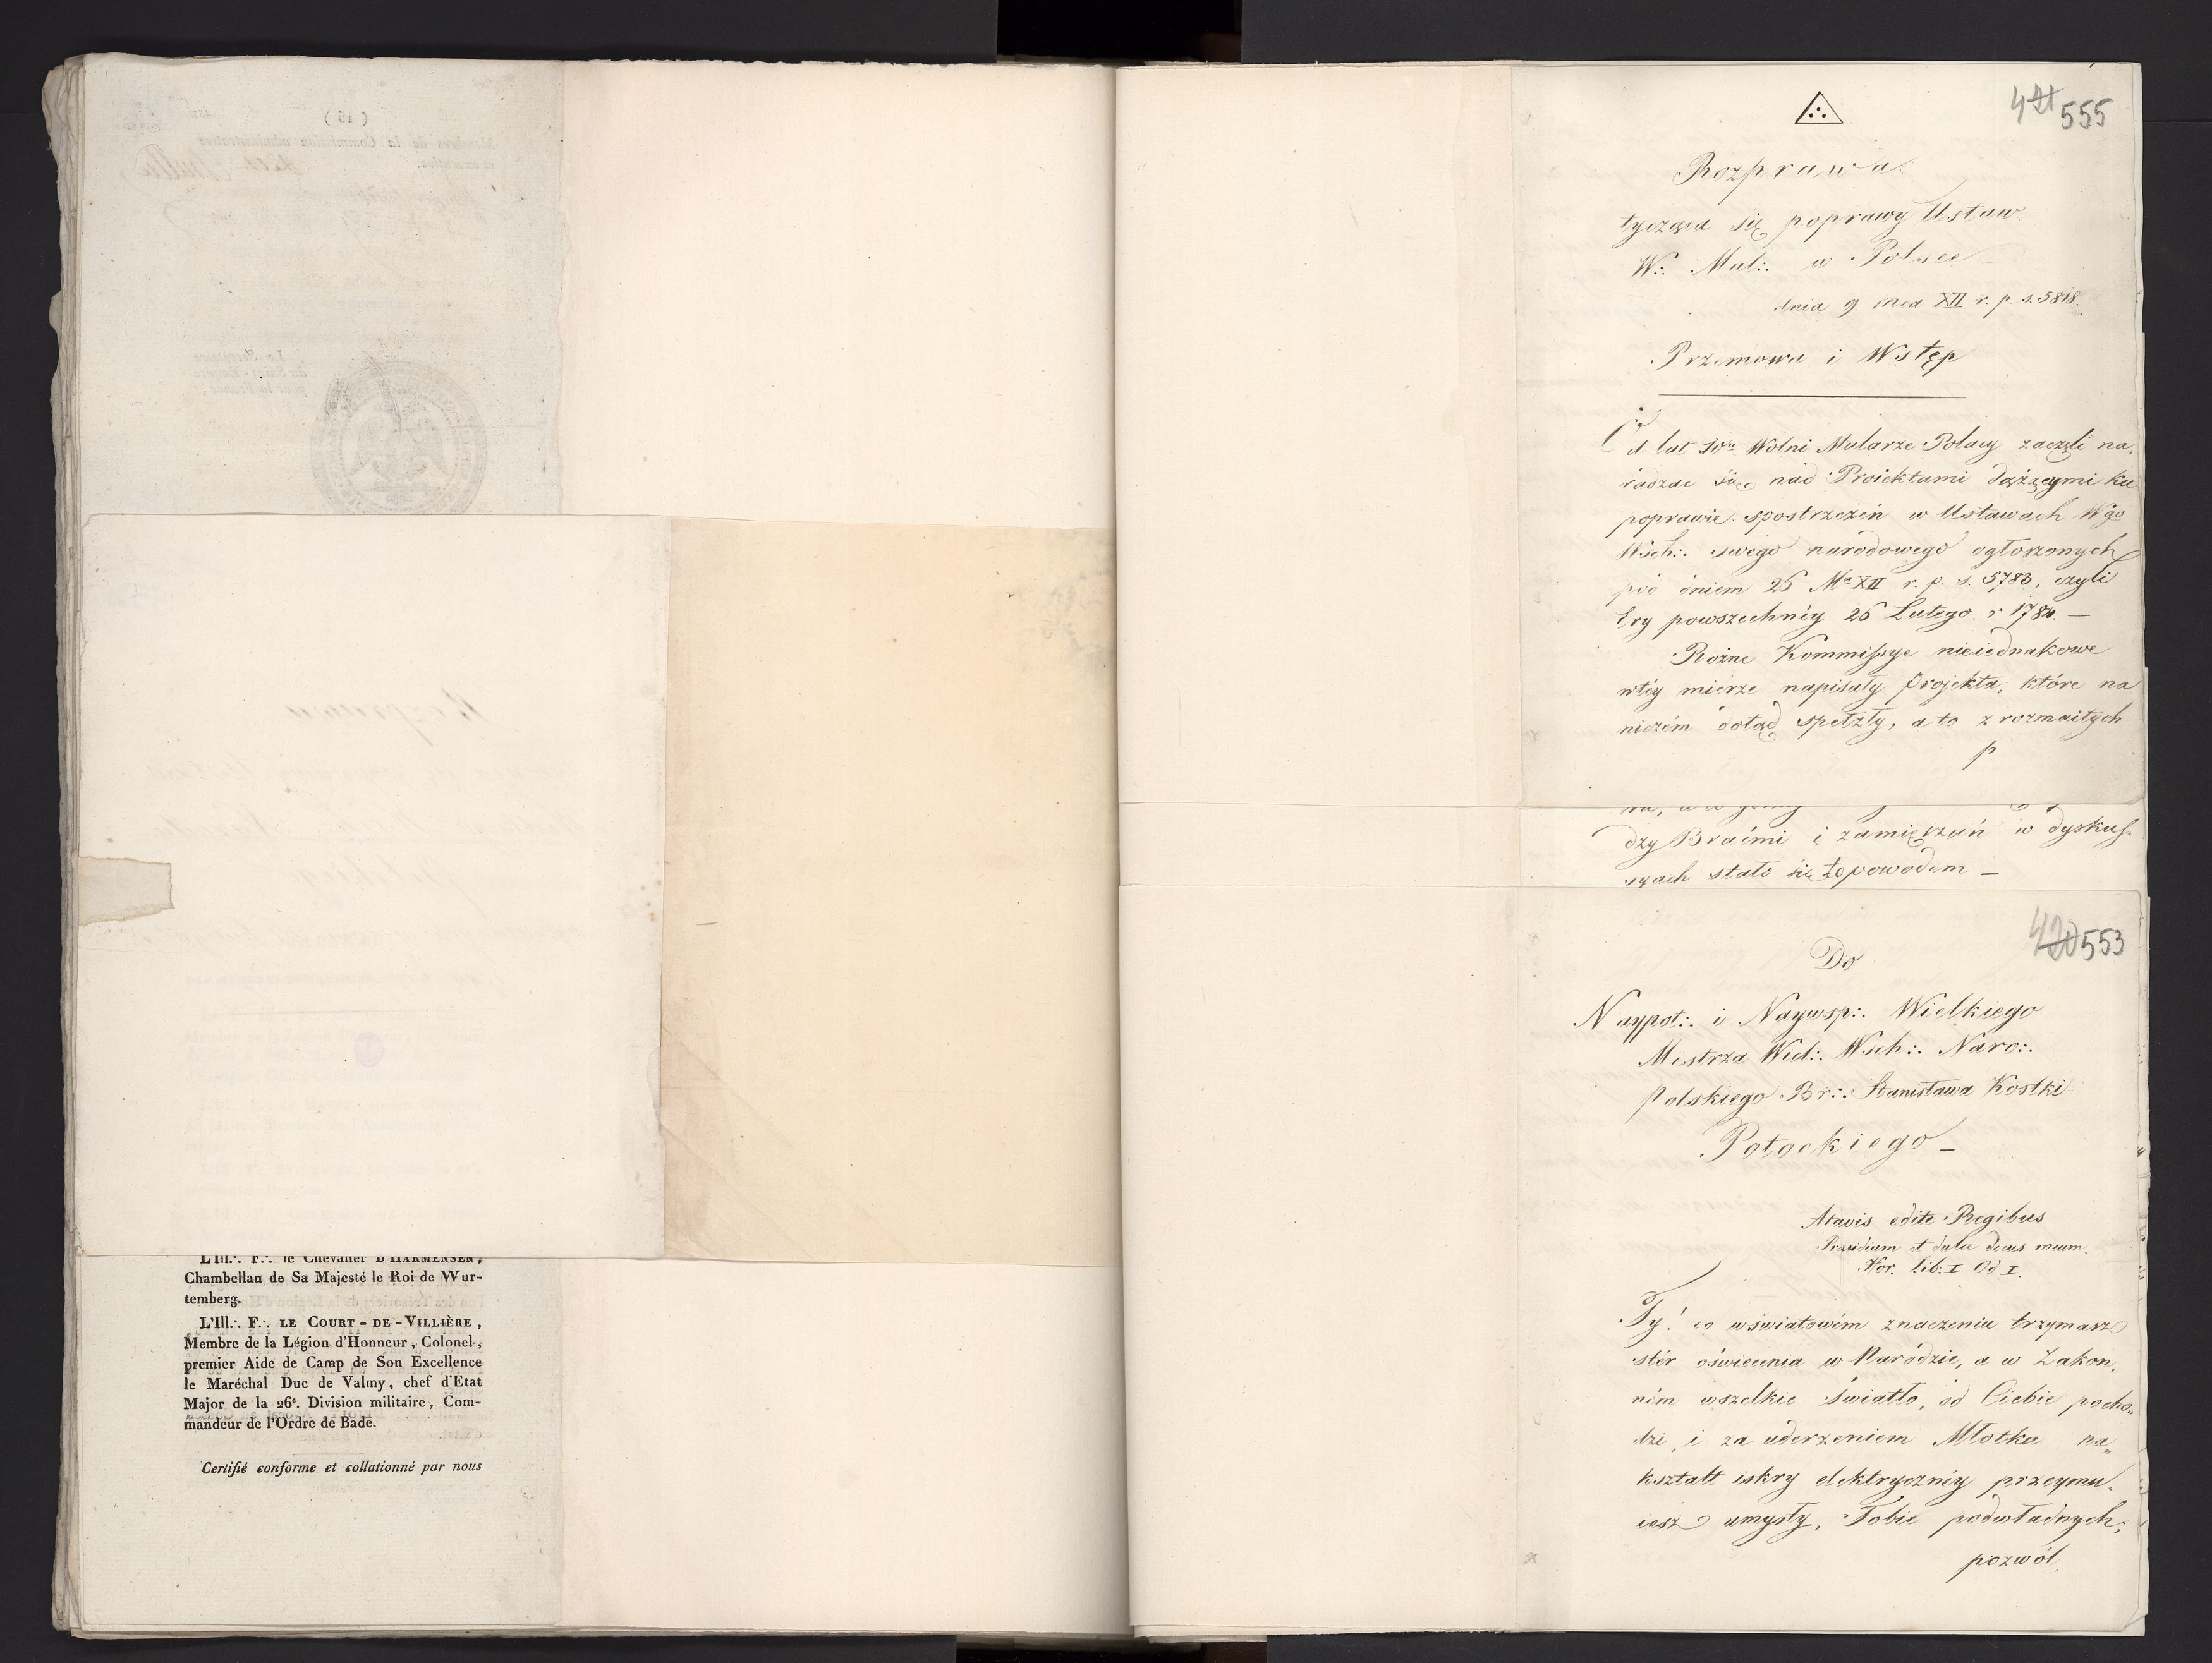 L'Ill∴ F∴ le Chevalier D'HARMENSEN,
Chambellan de Sa Majesté le Roi de Wur-
temberg.
L'Ill∴ F∴ LE COURT-DE-VILLIÈRE,
Membre de la Légion d'Honneur, Colonel,
premier Aide de Camp de Son Excellence
le Maréchal Duc de Valmy, chef d'Etat
Major de la 26e. Division militaire, Com-
mandeur de l'Ordre de Bade.
Certifié conforme et collationné par nous
421 555
Rozprawa
tycząca się poprawy Ustaw
W∴ Mul∴ w Polsce
dnia 9 mca XII r. p. s. 5818.
Przemowa i Wstęp
Od lat 10u Wolni Mularze Polacy zaczęli na,
radzac się nad Proiektami dążącymi ku
poprawie spostrzeżeń w Ustawach Wgo
Wsch∴ swego narodowego ogłoszonych
pod dniem 26 Ma XII r. p. s. 5783, czyli
Ery powszechnéy 26 Lutego r 1784. —
Rożne Kommissye nieiednakowe
wtéy mierze napisały projekta, które na
niczém dotąd spełzły, a to z rozmaitych
p
dzy Braćmi i zamięszań w dyskus-
syach stało się to powodem —
420 553
Do
Naypot∴ i Naywsp∴ Wielkiego
Mistrza Wiel∴ Wsch∴ Naro∴
Polskiego Br∴ Stanisława Kostki
Potockiego —
Atavis edite Regibus
Præsidium et dulce decus meum.
Hor. Lib. I Od I.
Ty! co w światowém znaczeniu trzymasz
stér oświecenia w Narodzie, a w Zakon,
ném wszelkie światło, od Ciebie pocho„
dzi, i za uderzeniem Młotka na„
kształt iskry elektrycznéy przeymu„
iesz umysły, Tobie podwładnych;
pozwól